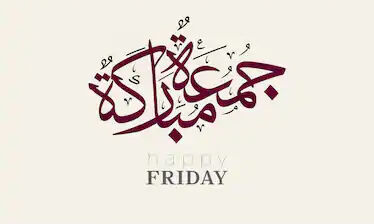 جُمُعَةٌ مُبَارَكَةٌ
happy
FRIDAY